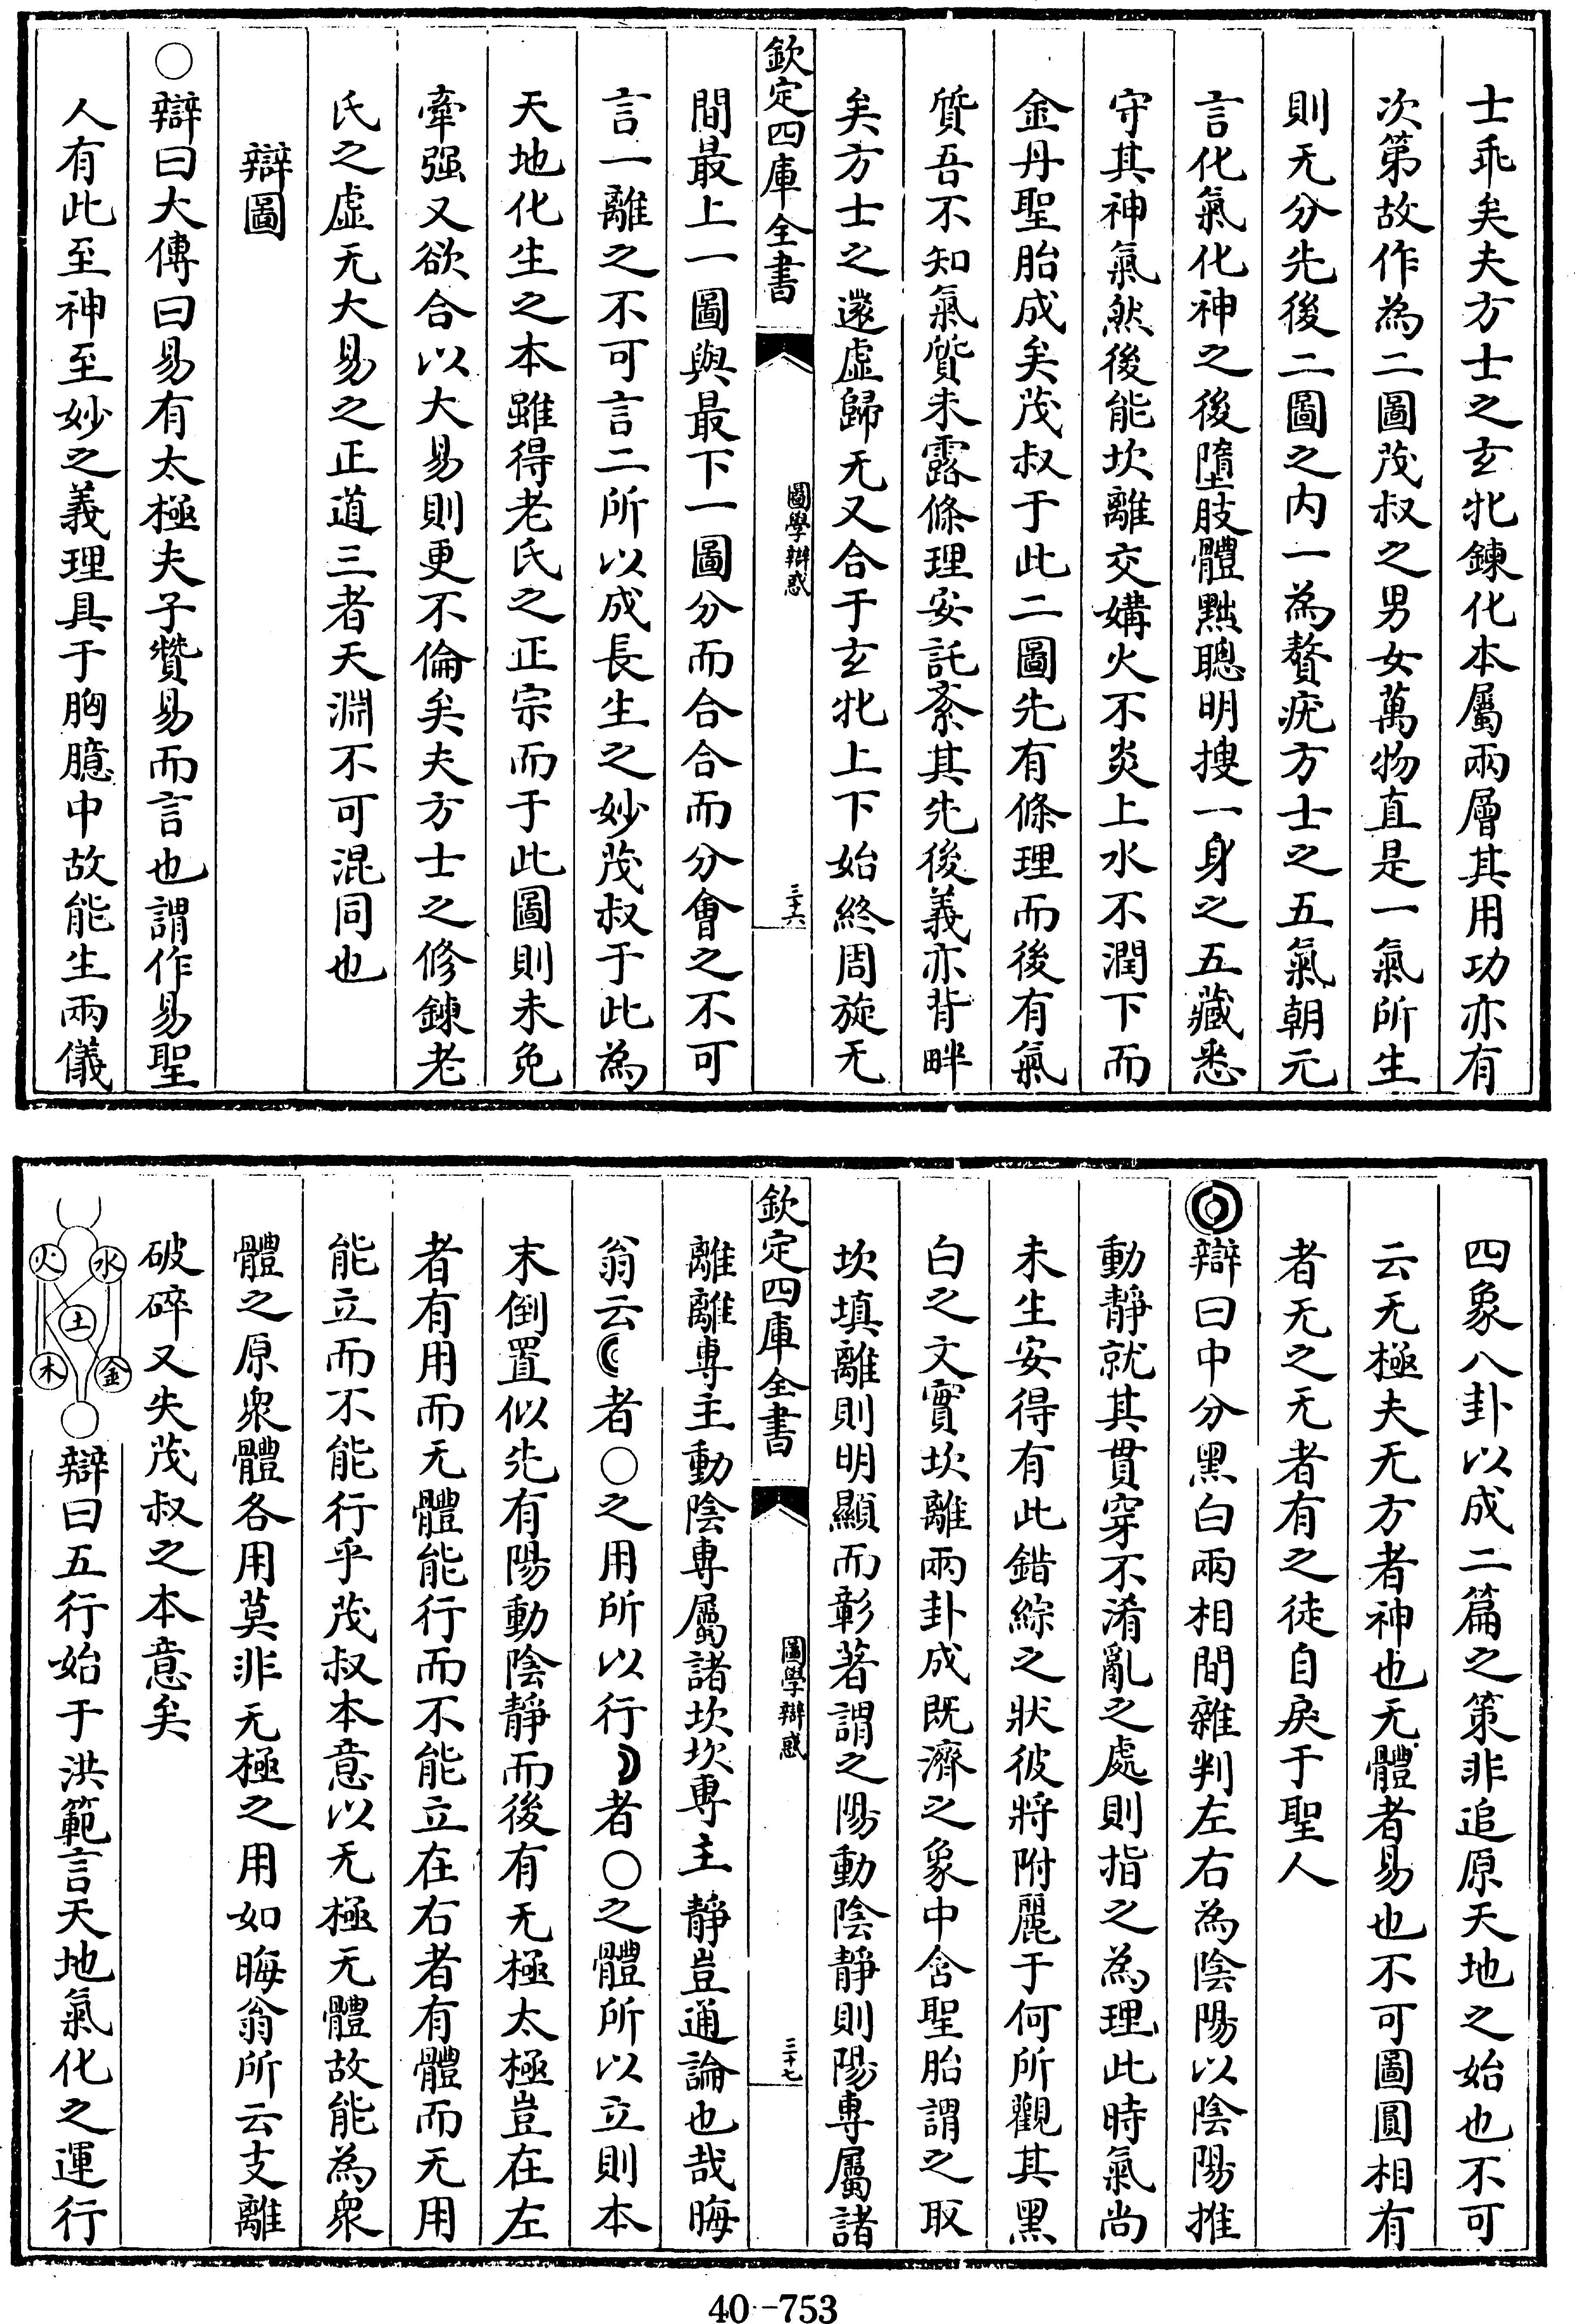 士乖矣夫方士之玄牝鍊化本屬兩層其用功亦有
次第故作為二圖茂叔之男女萬物直是一氣所生
則无分先後二圖之内一為贅疣方士之五氣朝元
言化氣化神之後墮肢體黜聰明搜一身之五藏悉
守其神氣然後能坎離交媾火不炎上水不潤下而
金丹聖胎成矣茂叔于此二圖先有條理而後有氣
質吾不知氣質未露條理安託紊其先後義亦背畔
矣方士之還虛歸无又合于玄牝上下始終周旋无
欽定四庫全書
圖學辯惑
三十六
間最上一圖與最下一圖分而合合而分會之不可
言一離之不可言二所以成長生之妙茂叔于此為
天地化生之本雖得老氏之正宗而于此圖則未免
牽强又欲合以大易則更不倫矣夫方士之修鍊老
氏之虛无大易之正道三者天淵不可混同也
辯圖
○辯曰大傳曰易有太極夫子贊易而言也謂作易聖
人有此至神至妙之義理具于胸臆中故能生兩儀
四象八卦以成二篇之策非追原天地之始也不可
云无極夫无方者神也无體者易也不可圖圓相有
者无之无者有之徒自戾于聖人
辯曰中分黑白兩相間雜判左右為陰陽以陰陽推
動靜就其貫穿不淆亂之處則指之為理此時氣尚
未生安得有此錯綜之狀彼將附麗于何所觀其黑
白之文實坎離兩卦成既濟之象中含聖胎謂之取
坎填離則明顯而彰著謂之陽動陰靜則陽專屬諸
欽定四庫全書
圖學辯惑
三十七
離離專主動陰專屬諸坎坎專主靜豈通論也哉晦
翁云者○之用所以行者○之體所以立則本
末倒置似先有陽動陰靜而後有无極太極豈在左
者有用而无體能行而不能立在右者有體而无用
能立而不能行乎茂叔本意以无極无體故能為衆
體之原衆體各用莫非无極之用如晦翁所云支離
破碎又失茂叔之本意矣
水
火
土
金
木
辯曰五行始于洪範言天地氣化之運行
40-753